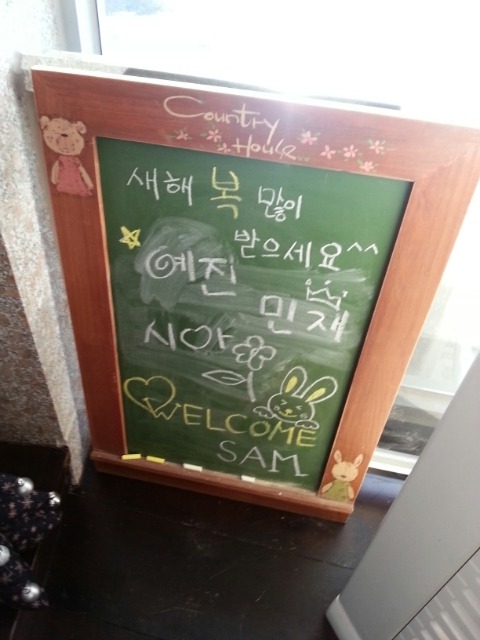 Country
House
새해 복 많이
받으세요^^
예진
민재
시아
WELCOME
SAM